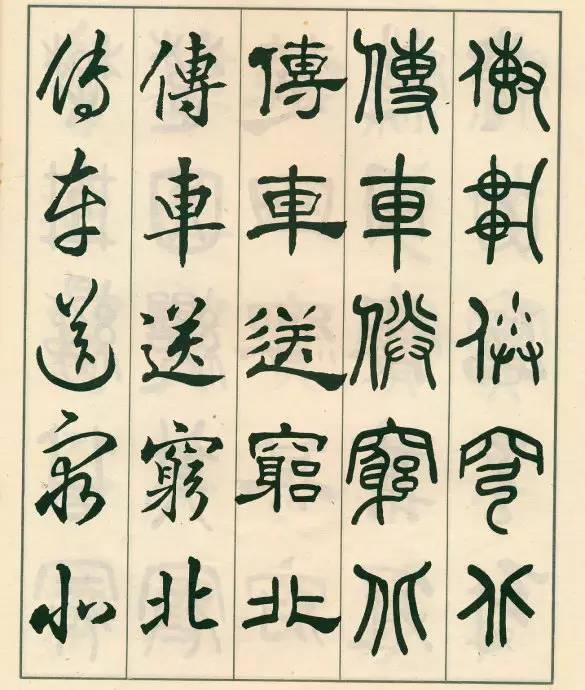 傳車送窮北
傳車送窮北
傳車送窮北
傳車送窮北
傳車送窮北